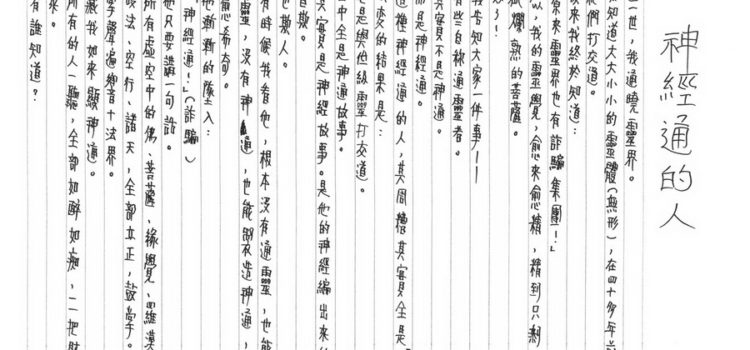 神經通的人
一世，我通曉靈界。
知道大大小小的靈體（無形），在四十多年
們打交道。
後來我終於知道：
原來靈界也有詐騙集團！」
以，我的靈覺，愈來愈精，精到只剩
爛熟的菩薩。
！」
告知大家一件事——
有些自稱通靈者。
其實不是神通。
而是神經通。
這種神經通的人，其周遭其實全是
交的結果是：
是與他緣靈打交道。
中全是神通故事。
其實是神經故事。是他的神經編出來
也欺人。
有時候我看他，根本沒有通靈，也能
靈，沒有神通，也能製造神通，
愈希奇。
他漸漸的墜入：
神經通！」（詐騙）
他只要講一句話。
所有虛空中的佛、菩薩、緣覺、四維
淡法、空行、諸天，全部立正，鼓掌。
掌聲遍響十法界。
我如來顯神通。
所有的人一聽，全部如醉如痴，一一把
來。
有誰知道？